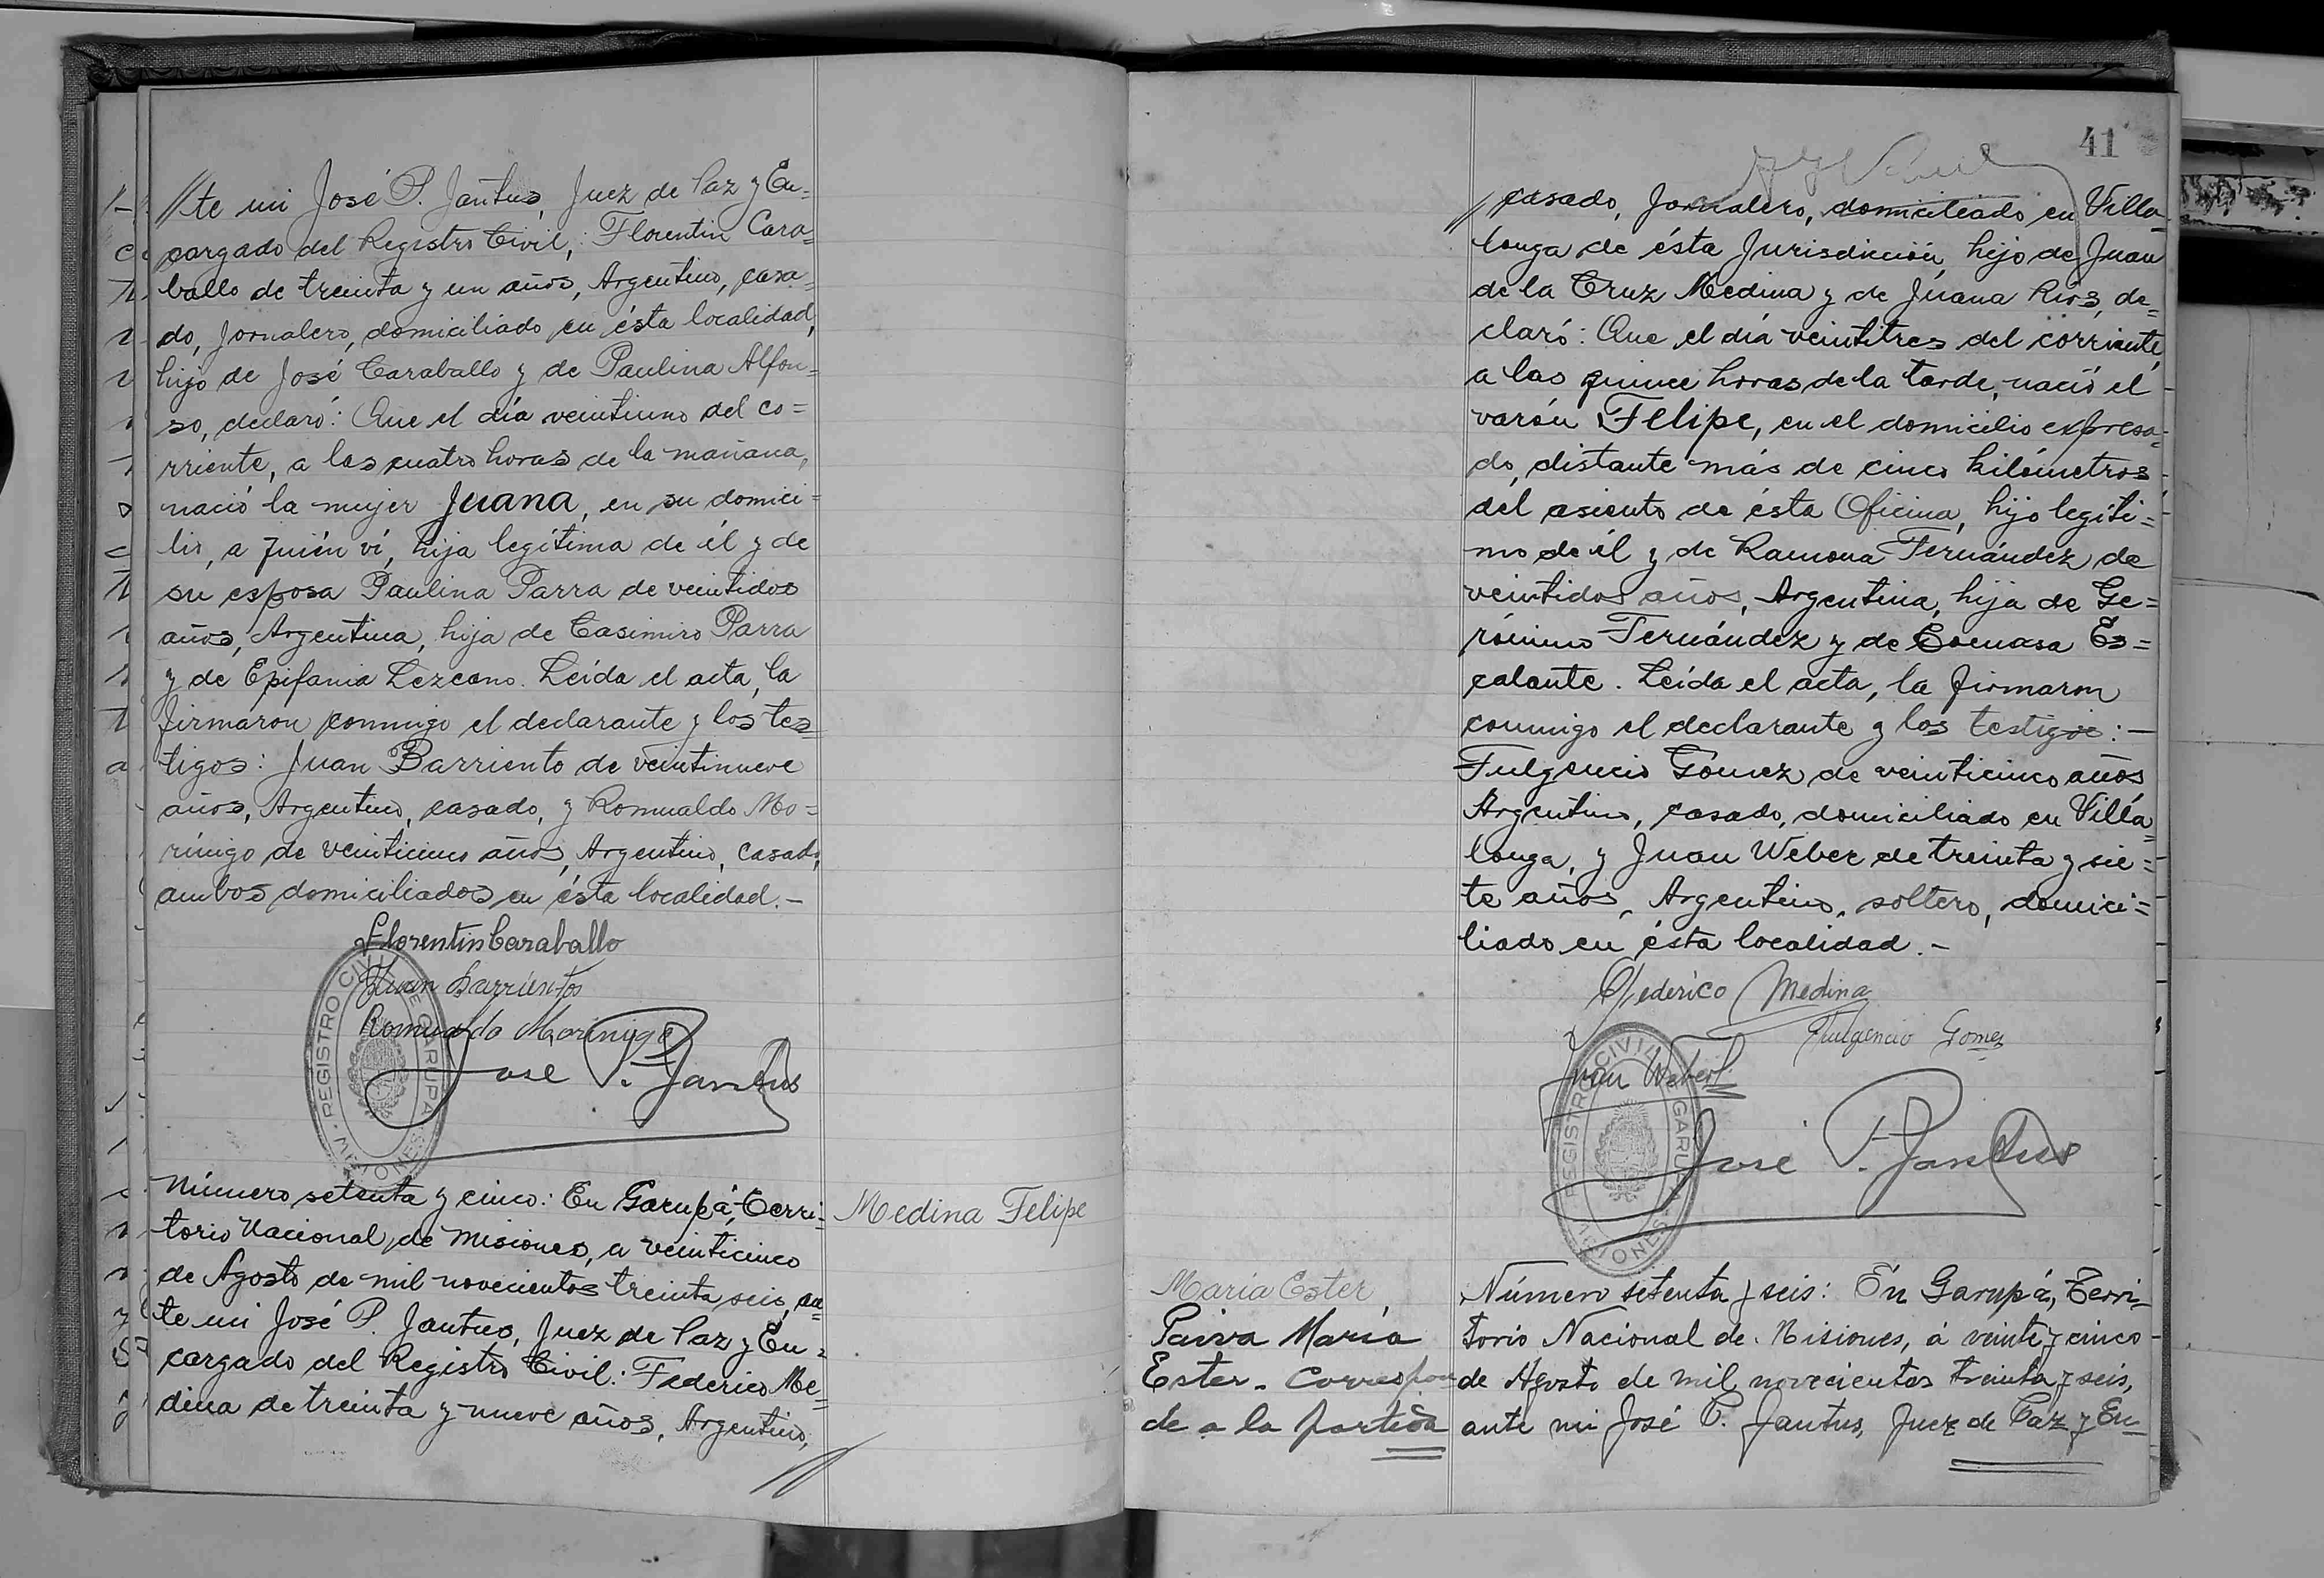 //te mi José P. Jantus, Juez de Paz y En=
cargado del Registro Civil,: Florentin Cara=
ballo de treinta y un años, Argentino, casa=
do, jornalero, domiciliado en ésta localidad,
hijo de José Caraballo y de Paulina Alfon=
so, declaró: Que el día veintiuno del co=
rriente, a las cuatro horas de la mañana,
nació la mujer Juana, en su domici=
lio, a quién ví, hija legítima de él y de
su esposa Paulina Parra de veintidos
años, Argentina, hija de Casimiro Parra
y de Epifania Lezcano. Leída el acta, la
firmaron conmigo el declarante y los tes=
tigos: Juan Barriento de veintinueve
años, Argentino, casado, y Romualdo Mo=
rínigo de veinticinco años, Argentino, casado,
ambos domiciliados en ésta localidad.-
Florentin Caraballo
Juan Barrientos
Romualdo Morinigo
José P. Jantus
REGISTRO CIVIL DE GARUPA
MISIONES
Número setenta y cinco: En Garupá, Terri=
torio Nacional de Misiones, a veinticinco
de Agosto de mil novecientos treinta seis, an=
te mi José P. Jantus, Juez de Paz y En=
cargado del Registro Civil: Federico Me=
dina de treinta y nueve años, Argentino,
//
Medina Felipe
41
// casado, jornalero, domiciliado en Villa=
longa de ésta Jurisdicción, hijo de Juan
de la Cruz Medina y de Juana Rios, de=
claró: Que el día veintitres del corriente,
a las quince horas de la tarde, nació el
varón Felipe, en el domicilio expresa=
do, distante más de cinco kilómetros
del asiento de ésta Oficina, hijo legíti=
mo de él y de Ramona Fernández de
veintidos años, Argentina, hija de Ge=
rónimo Fernández y de Es=
calante. Leída el acta, la firmaron
conmigo el declarante y los testigos:-
Fulgencio Gómez de veinticinco años
Argentino, casado, domiciliado en Villa=
longa, y Juan Weber de treinta y sie=
te años, Argentino, soltero, domici=
liado en ésta localidad.-
Federico Medina
Fulgencio Gomez
Juan Weber
José P. Jantus
REGISTRO CIVIL GARUPA
MISIONES
Maria Ester
Paiva María
Ester. Correspon
de a la partida
Número setenta y seis: En Garupá, Terri=
torio Nacional de Misiones, á veinte y cinco
de Agosto de mil novecientos treinta y seis,
ante mi José P. Jantus, Juez de Paz y En=